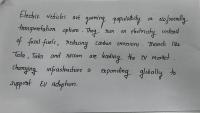 Electric vehicles are gaining popularity as eco friendly
transportation option. They run on electricity instead
of fossil fuels, reducing carbon emissions. Brands like
Tesla, Tata and nissan are leading the EV market.
Charging infrastructure is expanding globally to
support EV adoption.